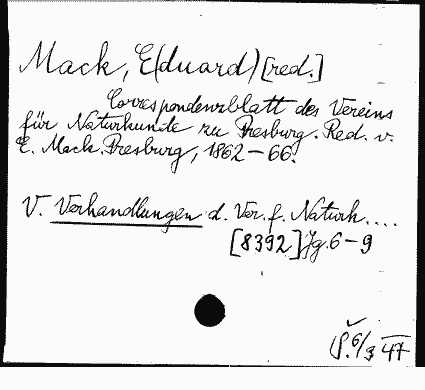 Mack, E(duard) [red.]
Correspondenzblatt des Vereins
für Naturkunde zu Presburg. Red. v.
E. Mack. Presburg, 1862-66.
V. Verhandlungen d. Ver. f. Naturk....
[8392] Jg. 6-9